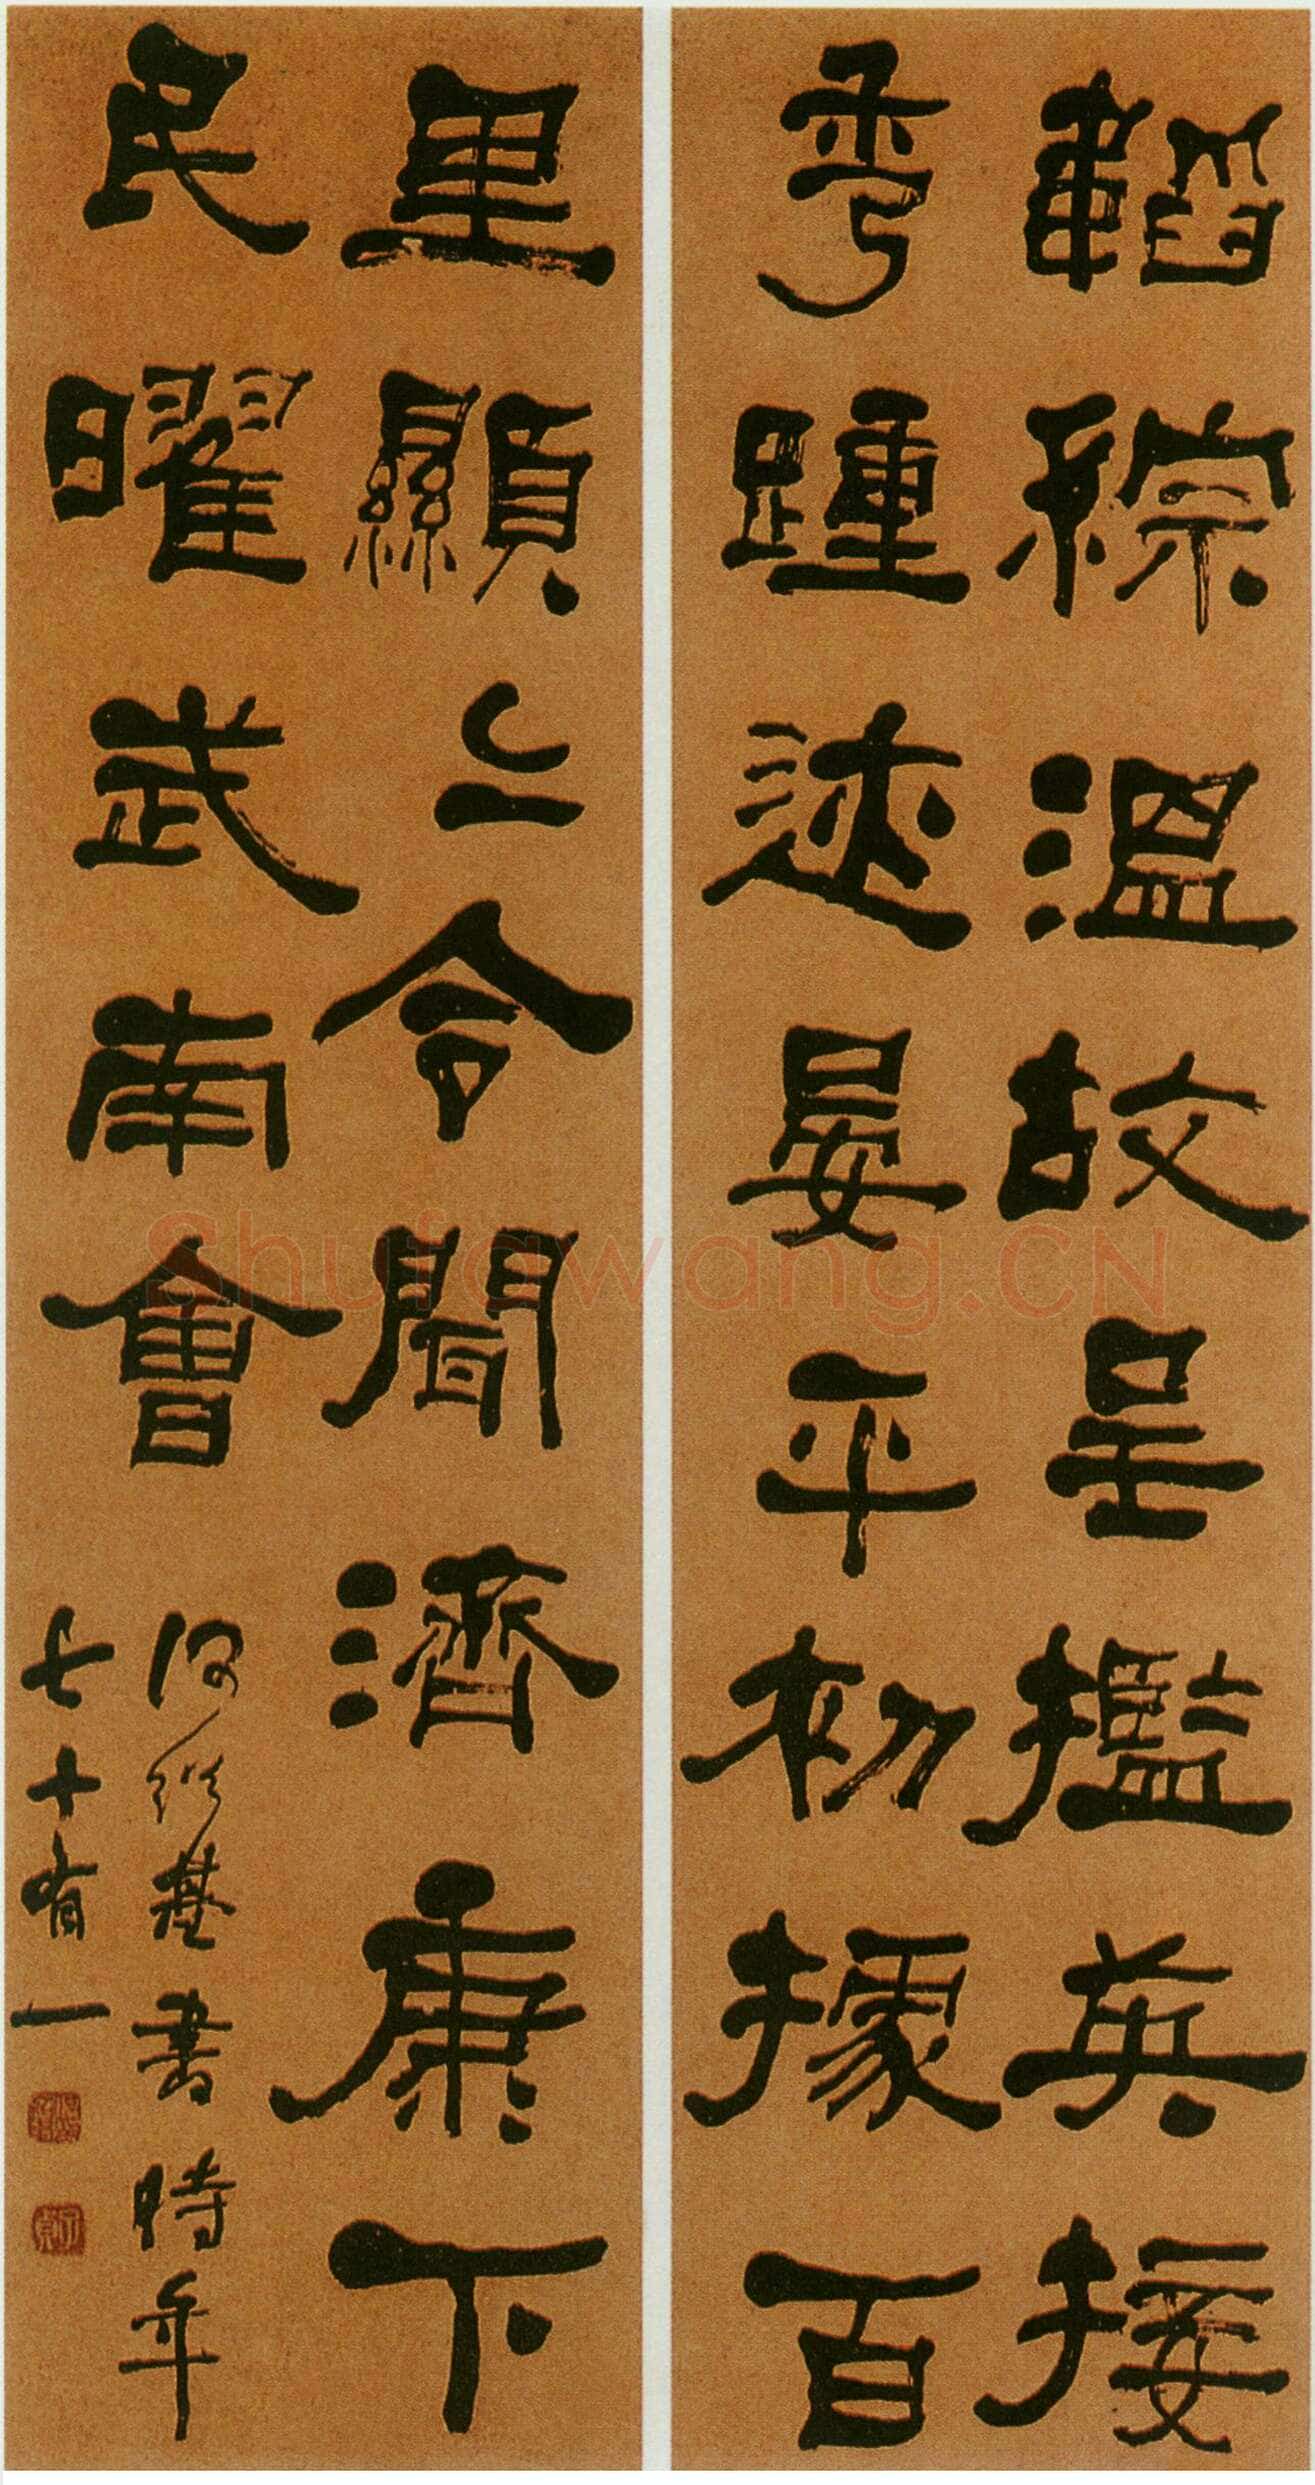 韜綜溫故呈㩜英接
秀踵迹晏平初據百
里顯上令聞濟康下
民曜武南會
何紹基書時年
七十有一
Shufawang.CN